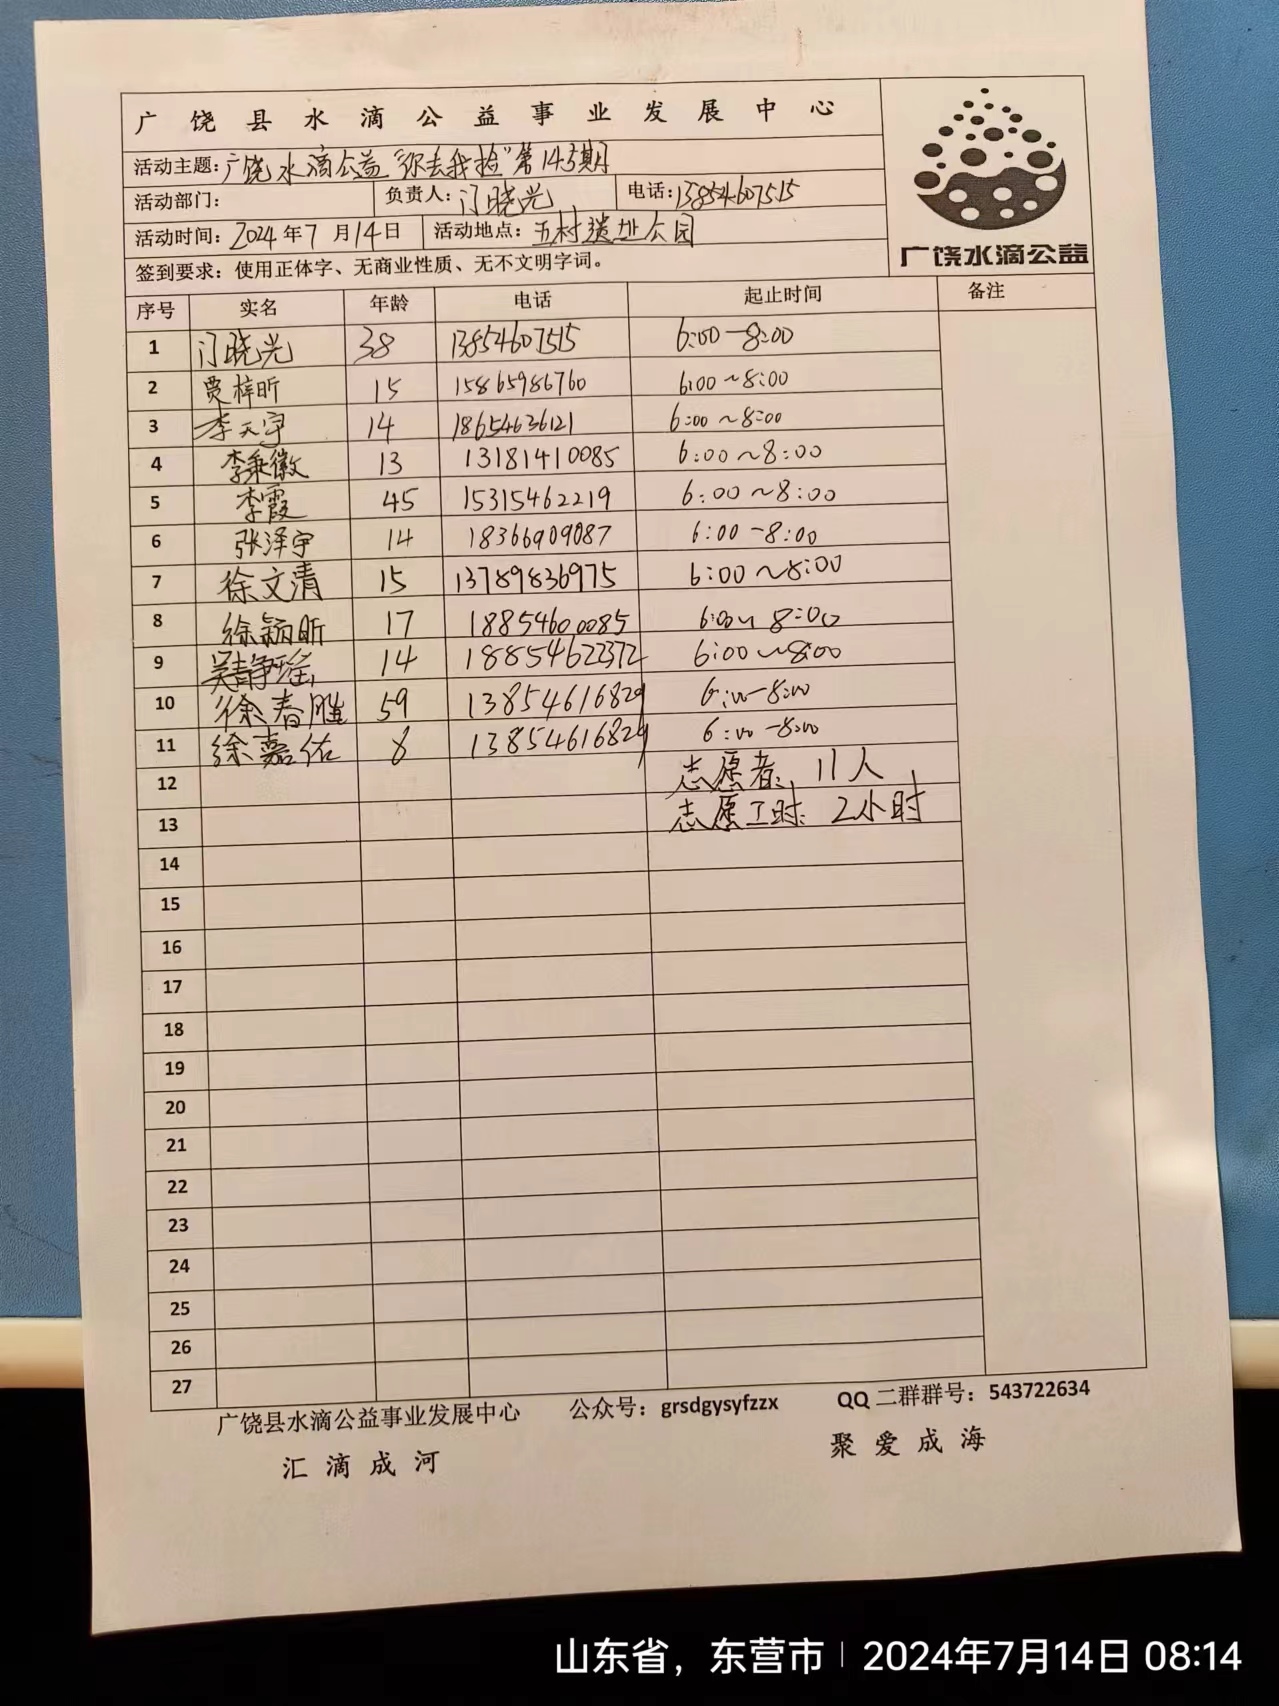 广饶县水滴公益事业发展中心
活动主题：广饶水滴公益“你丢我捡”第145期
活动部门： 负责人：门晓光 电话：13854607515
活动时间：2024年7月14日 活动地点：五村遗址公园
签到要求：使用正体字、无商业性质、无不文明字词。
广饶水滴公益
序号 实名 年龄 电话 起止时间 备注
1 门晓光 38 13854607515 6:00-8:00
2 贾梓昕 15 15865986760 6:00~8:00
3 李天宇 14 18654636121 6:00~8:00
4 李秉徽 13 13181410085 6:00~8:00
5 李霞 45 15315462219 6:00~8:00
6 张泽宇 14 18366909087 6:00-8:00
7 徐文清 15 13789836975 6:00~8:00
8 徐颖昕 17 18854600085 6:00~8:00
9 吴静瑶 14 18854622372 6:00~8:00
10 徐春胜 59 13854616829 6:00-8:00
11 徐嘉佑 8 13854616829 6:00-8:00
12 志愿者：11人
13 志愿工时：2小时
14
15
16
17
18
19
20
21
22
23
24
25
26
27
广饶县水滴公益事业发展中心 公众号：grsdgysyfzzx QQ二群群号：543722634
汇滴成河 聚爱成海
山东省，东营市 | 2024年7月14日 08:14